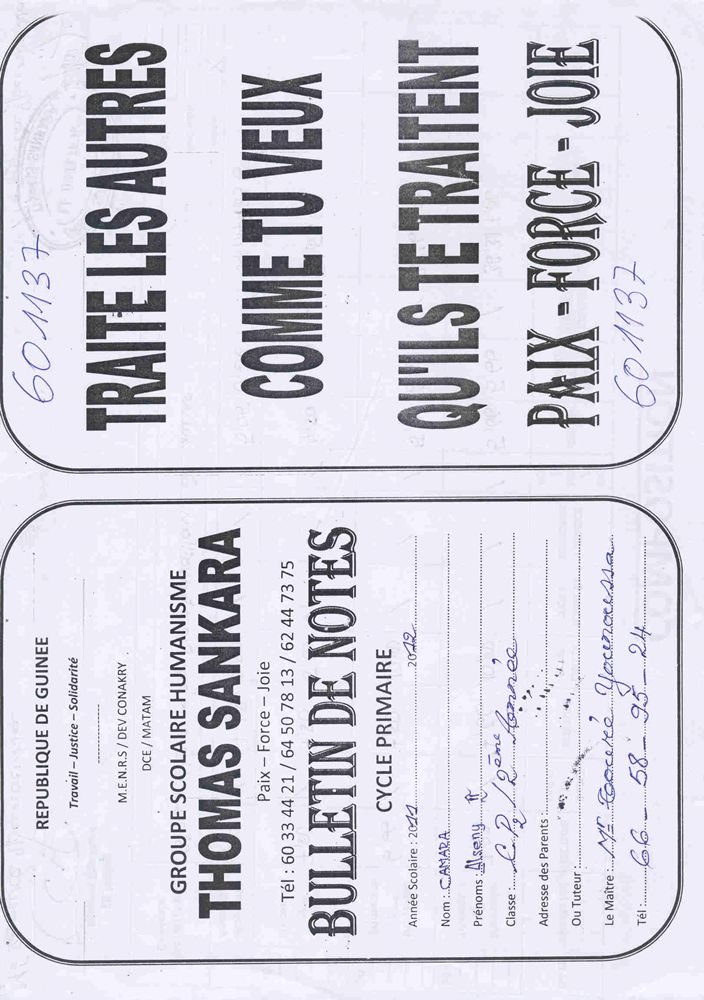 REPUBLIQUE DE GUINEE
Travail – Justice – Solidarité
M.E.N.R.S / DEV CONAKRY
DCE / MATAM
GROUPE SCOLAIRE HUMANISME
THOMAS SANKARA
Paix – Force – Joie
Tél : 60 33 44 21 / 64 50 78 13 / 62 44 73 75
BULLETIN DE NOTES
CYCLE PRIMAIRE
Année Scolaire : 2011 2012
Nom : CAMARA
Prénoms : Alseny
Classe : C.P2 / 2ème Année
Adresse des Parents :
Ou Tuteur :
Le Maître : Mr Touré Younoussa
Tél : 66 – 58 – 95 – 24
601137
TRAITE LES AUTRES
COMME TU VEUX
QU'ILS TE TRAITENT
PAIX - FORCE - JOIE
601137